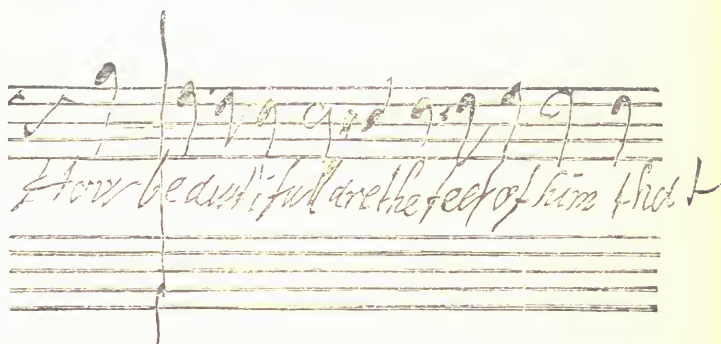 How beautifull are the feet of him that